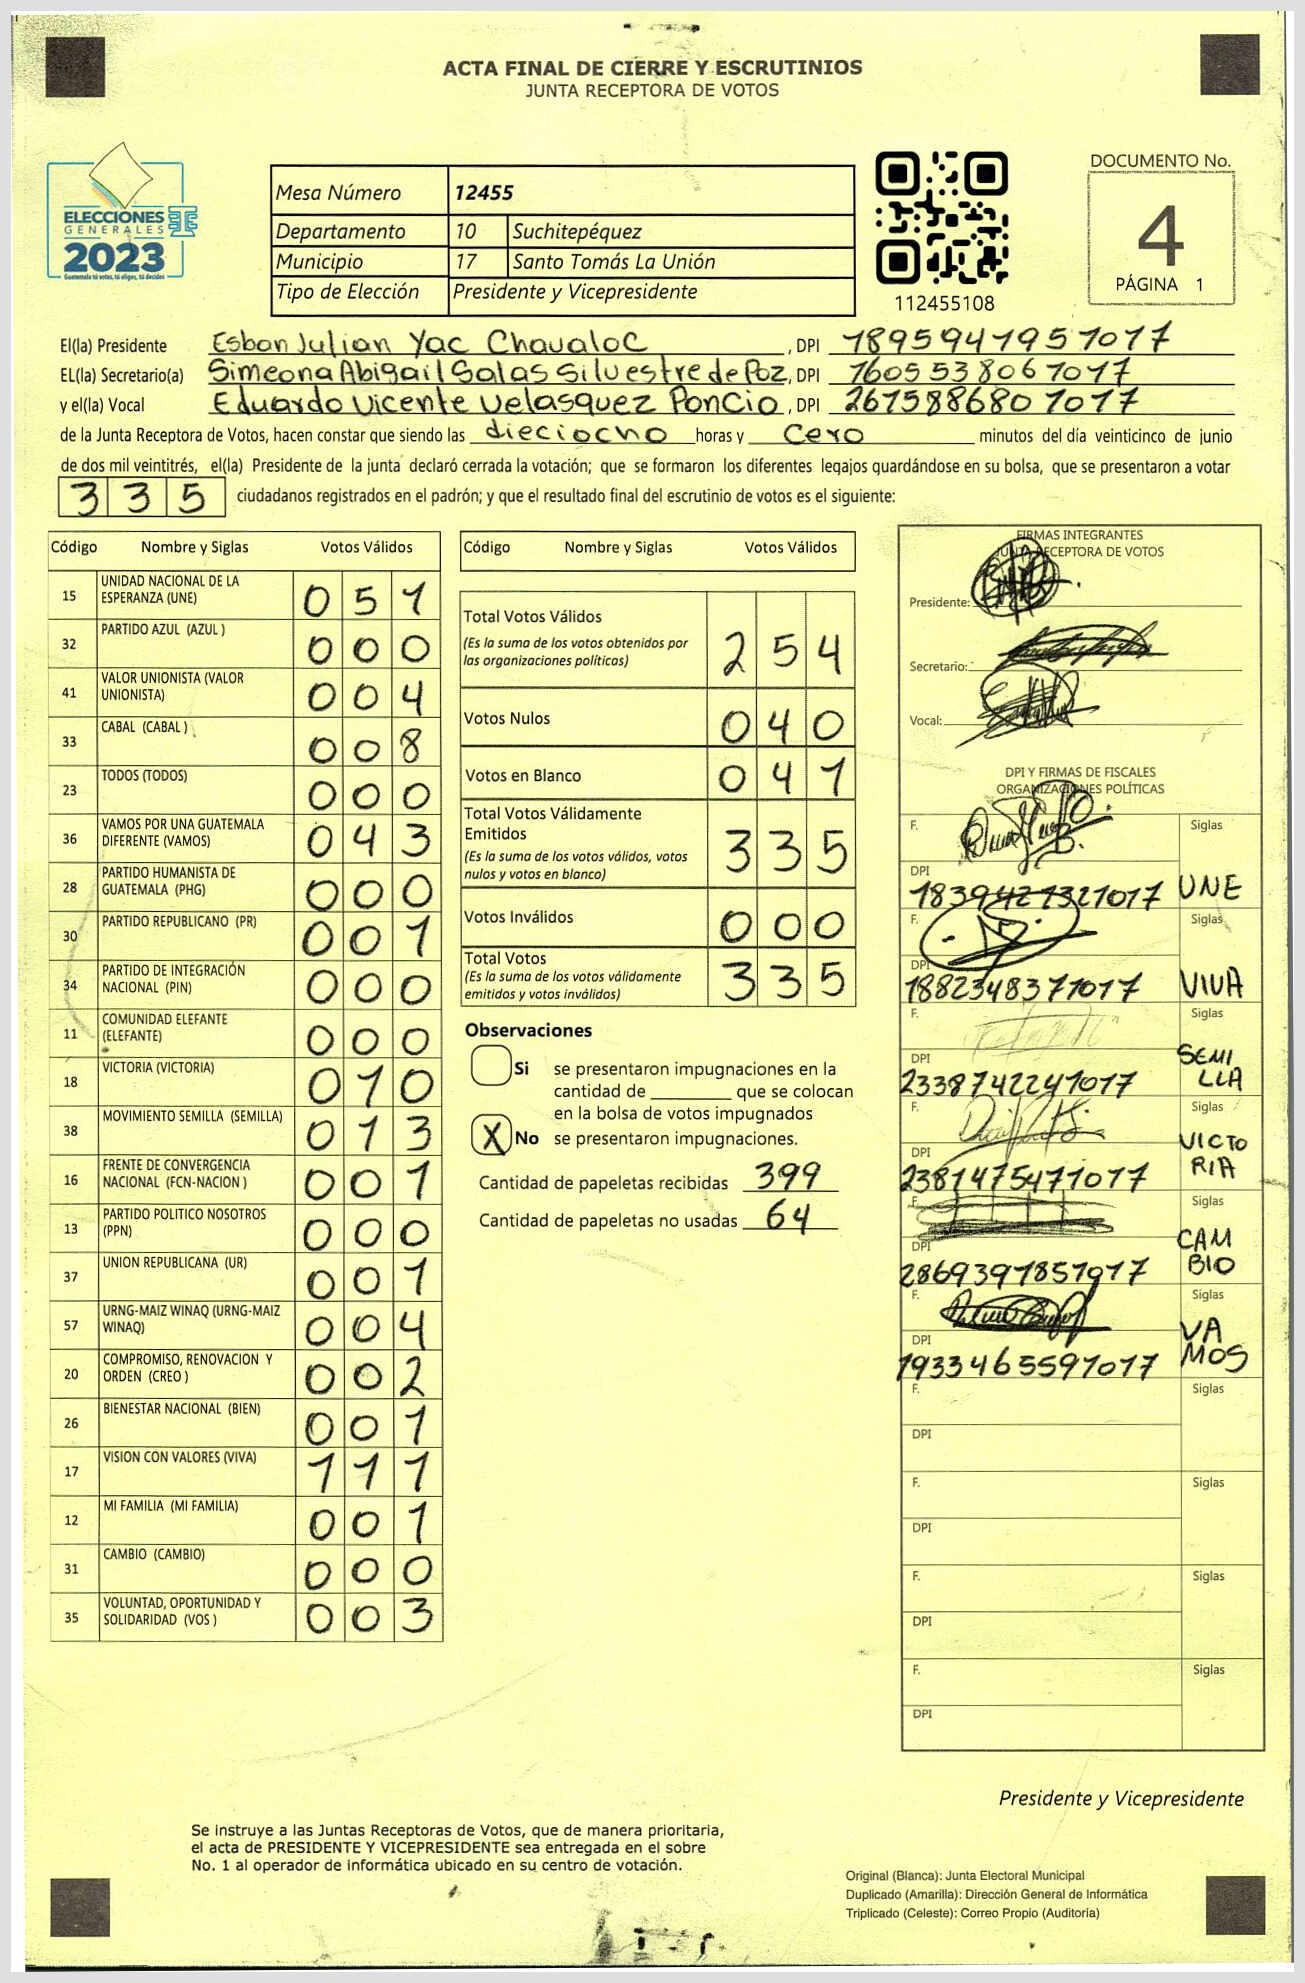 ACTA FINAL DE CIERRE Y ESCRUTINIOS
JUNTA RECEPTORA DE VOTOS
ELECCIONES
GENERALES
2023
Guatemala tú votas, tú eliges, tú decides
Mesa Número 12455
Departamento 10 Suchitepéquez
Municipio 17 Santo Tomás La Unión
Tipo de Elección Presidente y Vicepresidente
112455108
DOCUMENTO No.
4
PÁGINA 1
El(la) Presidente Esbon Julian Yac Chavaloc, DPI 1895941951017
EL(la) Secretario(a) Simeona Abigail Salas Silvestre de Poz, DPI 1605538061017
y el(la) Vocal Eduardo Vicente Velasquez Poncio, DPI 2615886801017
de la Junta Receptora de Votos, hacen constar que siendo las dieciocho horas y cero minutos del día veinticinco de junio
de dos mil veintitrés, el(la) Presidente de la junta declaró cerrada la votación; que se formaron los diferentes legajos guardándose en su bolsa, que se presentaron a votar
335 ciudadanos registrados en el padrón; y que el resultado final del escrutinio de votos es el siguiente:
Código Nombre y Siglas Votos Válidos
15 UNIDAD NACIONAL DE LA ESPERANZA (UNE) 051
32 PARTIDO AZUL (AZUL ) 000
41 VALOR UNIONISTA (VALOR UNIONISTA) 004
33 CABAL (CABAL ) 008
23 TODOS (TODOS) 000
36 VAMOS POR UNA GUATEMALA DIFERENTE (VAMOS) 043
28 PARTIDO HUMANISTA DE GUATEMALA (PHG) 000
30 PARTIDO REPUBLICANO (PR) 001
34 PARTIDO DE INTEGRACIÓN NACIONAL (PIN) 000
11 COMUNIDAD ELEFANTE (ELEFANTE) 000
18 VICTORIA (VICTORIA) 010
38 MOVIMIENTO SEMILLA (SEMILLA) 013
16 FRENTE DE CONVERGENCIA NACIONAL (FCN-NACION ) 001
13 PARTIDO POLITICO NOSOTROS (PPN) 000
37 UNION REPUBLICANA (UR) 001
57 URNG-MAIZ WINAQ (URNG-MAIZ WINAQ) 004
20 COMPROMISO, RENOVACION Y ORDEN (CREO ) 002
26 BIENESTAR NACIONAL (BIEN) 001
17 VISION CON VALORES (VIVA) 111
12 MI FAMILIA (MI FAMILIA) 001
31 CAMBIO (CAMBIO) 000
35 VOLUNTAD, OPORTUNIDAD Y SOLIDARIDAD (VOS ) 003
Código Nombre y Siglas Votos Válidos
Total Votos Válidos 254
(Es la suma de los votos obtenidos por
las organizaciones políticas)
Votos Nulos 040
Votos en Blanco 041
Total Votos Válidamente
Emitidos 335
(Es la suma de los votos válidos, votos
nulos y votos en blanco)
Votos Inválidos 000
Total Votos 335
(Es la suma de los votos válidamente
emitidos y votos inválidos)
Observaciones
Si se presentaron impugnaciones en la
cantidad de ________ que se colocan
en la bolsa de votos impugnados
X No se presentaron impugnaciones.
Cantidad de papeletas recibidas 399
Cantidad de papeletas no usadas 64
FIRMAS INTEGRANTES
JUNTA RECEPTORA DE VOTOS
Presidente:
Secretario:
Vocal:
DPI Y FIRMAS DE FISCALES
ORGANIZACIONES POLÍTICAS
F. Siglas
DPI
1839421321017 UNE
F. Siglas
DPI
1882348371017 VIVA
F. Siglas
DPI SEMI
2338742241017 LLA
F. Siglas
DPI VICTO
2381475471017 RIA
F. Siglas
DPI CAM
2869397851017 BIO
F. Siglas
DPI VA
1933465591017 MOS
F. Siglas
DPI
F. Siglas
DPI
F. Siglas
DPI
F. Siglas
DPI
Presidente y Vicepresidente
Se instruye a las Juntas Receptoras de Votos, que de manera prioritaria,
el acta de PRESIDENTE Y VICEPRESIDENTE sea entregada en el sobre
No. 1 al operador de informática ubicado en su centro de votación.
Original (Blanca): Junta Electoral Municipal
Duplicado (Amarilla): Dirección General de Informática
Triplicado (Celeste): Correo Propio (Auditoría)